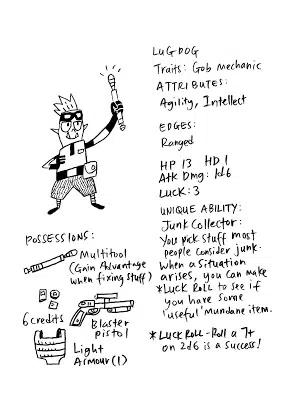 LUGDOG
Traits: Gob mechanic
ATTRIBUTES:
Agility, Intellect
EDGES:
Ranged
HP 13 HD 1
Atk Dmg: 1d6
LUCK: 3
UNIQUE ABILITY:
Junk Collector:
You pick stuff most
people consider junk.
When a situation
arises, you can make
*LUCK ROLL to see if
you have some
'useful' mundane item.
*LUCK ROLL - Roll a 7+
on 2d6 is a success!
POSSESSIONS:
Multitool
(Gain Advantage
when fixing stuff)
6 credits
Blaster
pistol
Light
Armour (1)